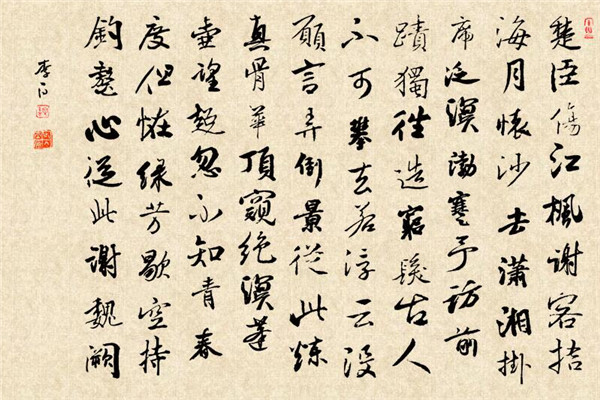 楚臣傷江楓謝客拾
海月懷沙去瀟湘掛
席泛溟渤蹇予訪前
蹟獨往造窮髮古人
不可攀去若浮云没
願言弄倒景從此煉
真骨華頂窺絕溟蓬
壺望超忽不知青春
度但怪綠芳歇空持
釣鰲心從此謝魏闕
李白